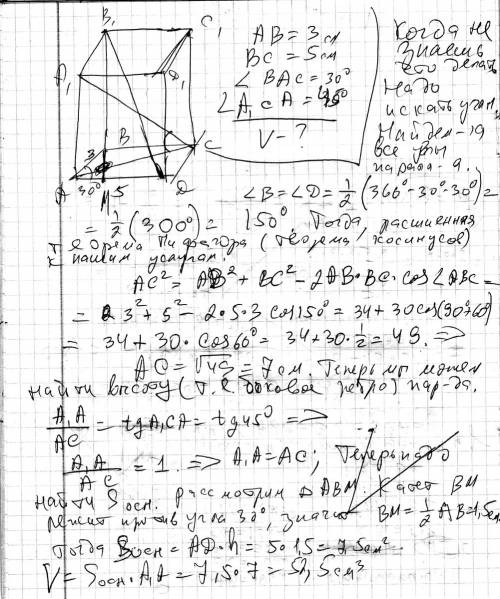 B₁
C₁
A₁
D₁
B
C
A
D
M
3
30°
5
AB = 3 см
BC = 5 см
∠ BAC = 30°
∠ A₁CA = 45°
V - ?
Когда не
знаешь
что делать
Надо
искать углы
Найдем
все углы
∠B = ∠D = 1/2 (360° - 30° - 30°) =
= 1/2 (300°) = 150°. Тогда, расширенная
теорема Пифагора (теорема косинусов)
к нашим услугам.
AC² = AB² + BC² - 2AB · BC · cos∠ABC =
= 3² + 5² - 2 · 5 · 3 cos150° = 34 + 30cos(90+60°)
= 34 + 30 · cos60° = 34 + 30 · 1/2 = 49. =>
AC = √49 = 7 см. Теперь мы можем
найти высоту (т.е боковое ребро) пар-да.
A₁A/AC = tgA₁CA = tg45° =>
A₁A/AC = 1. => A₁A = AC; Теперь надо
найти Sосн. рассмотрим △ ABM. Катет BM
лежит против угла 30°, значит BM = 1/2 AB = 1,5см
Тогда Sосн = AD · h = 5 · 1,5 = 7,5см²
V = Sосн · A₁A = 7,5 · 7 = 52,5см³